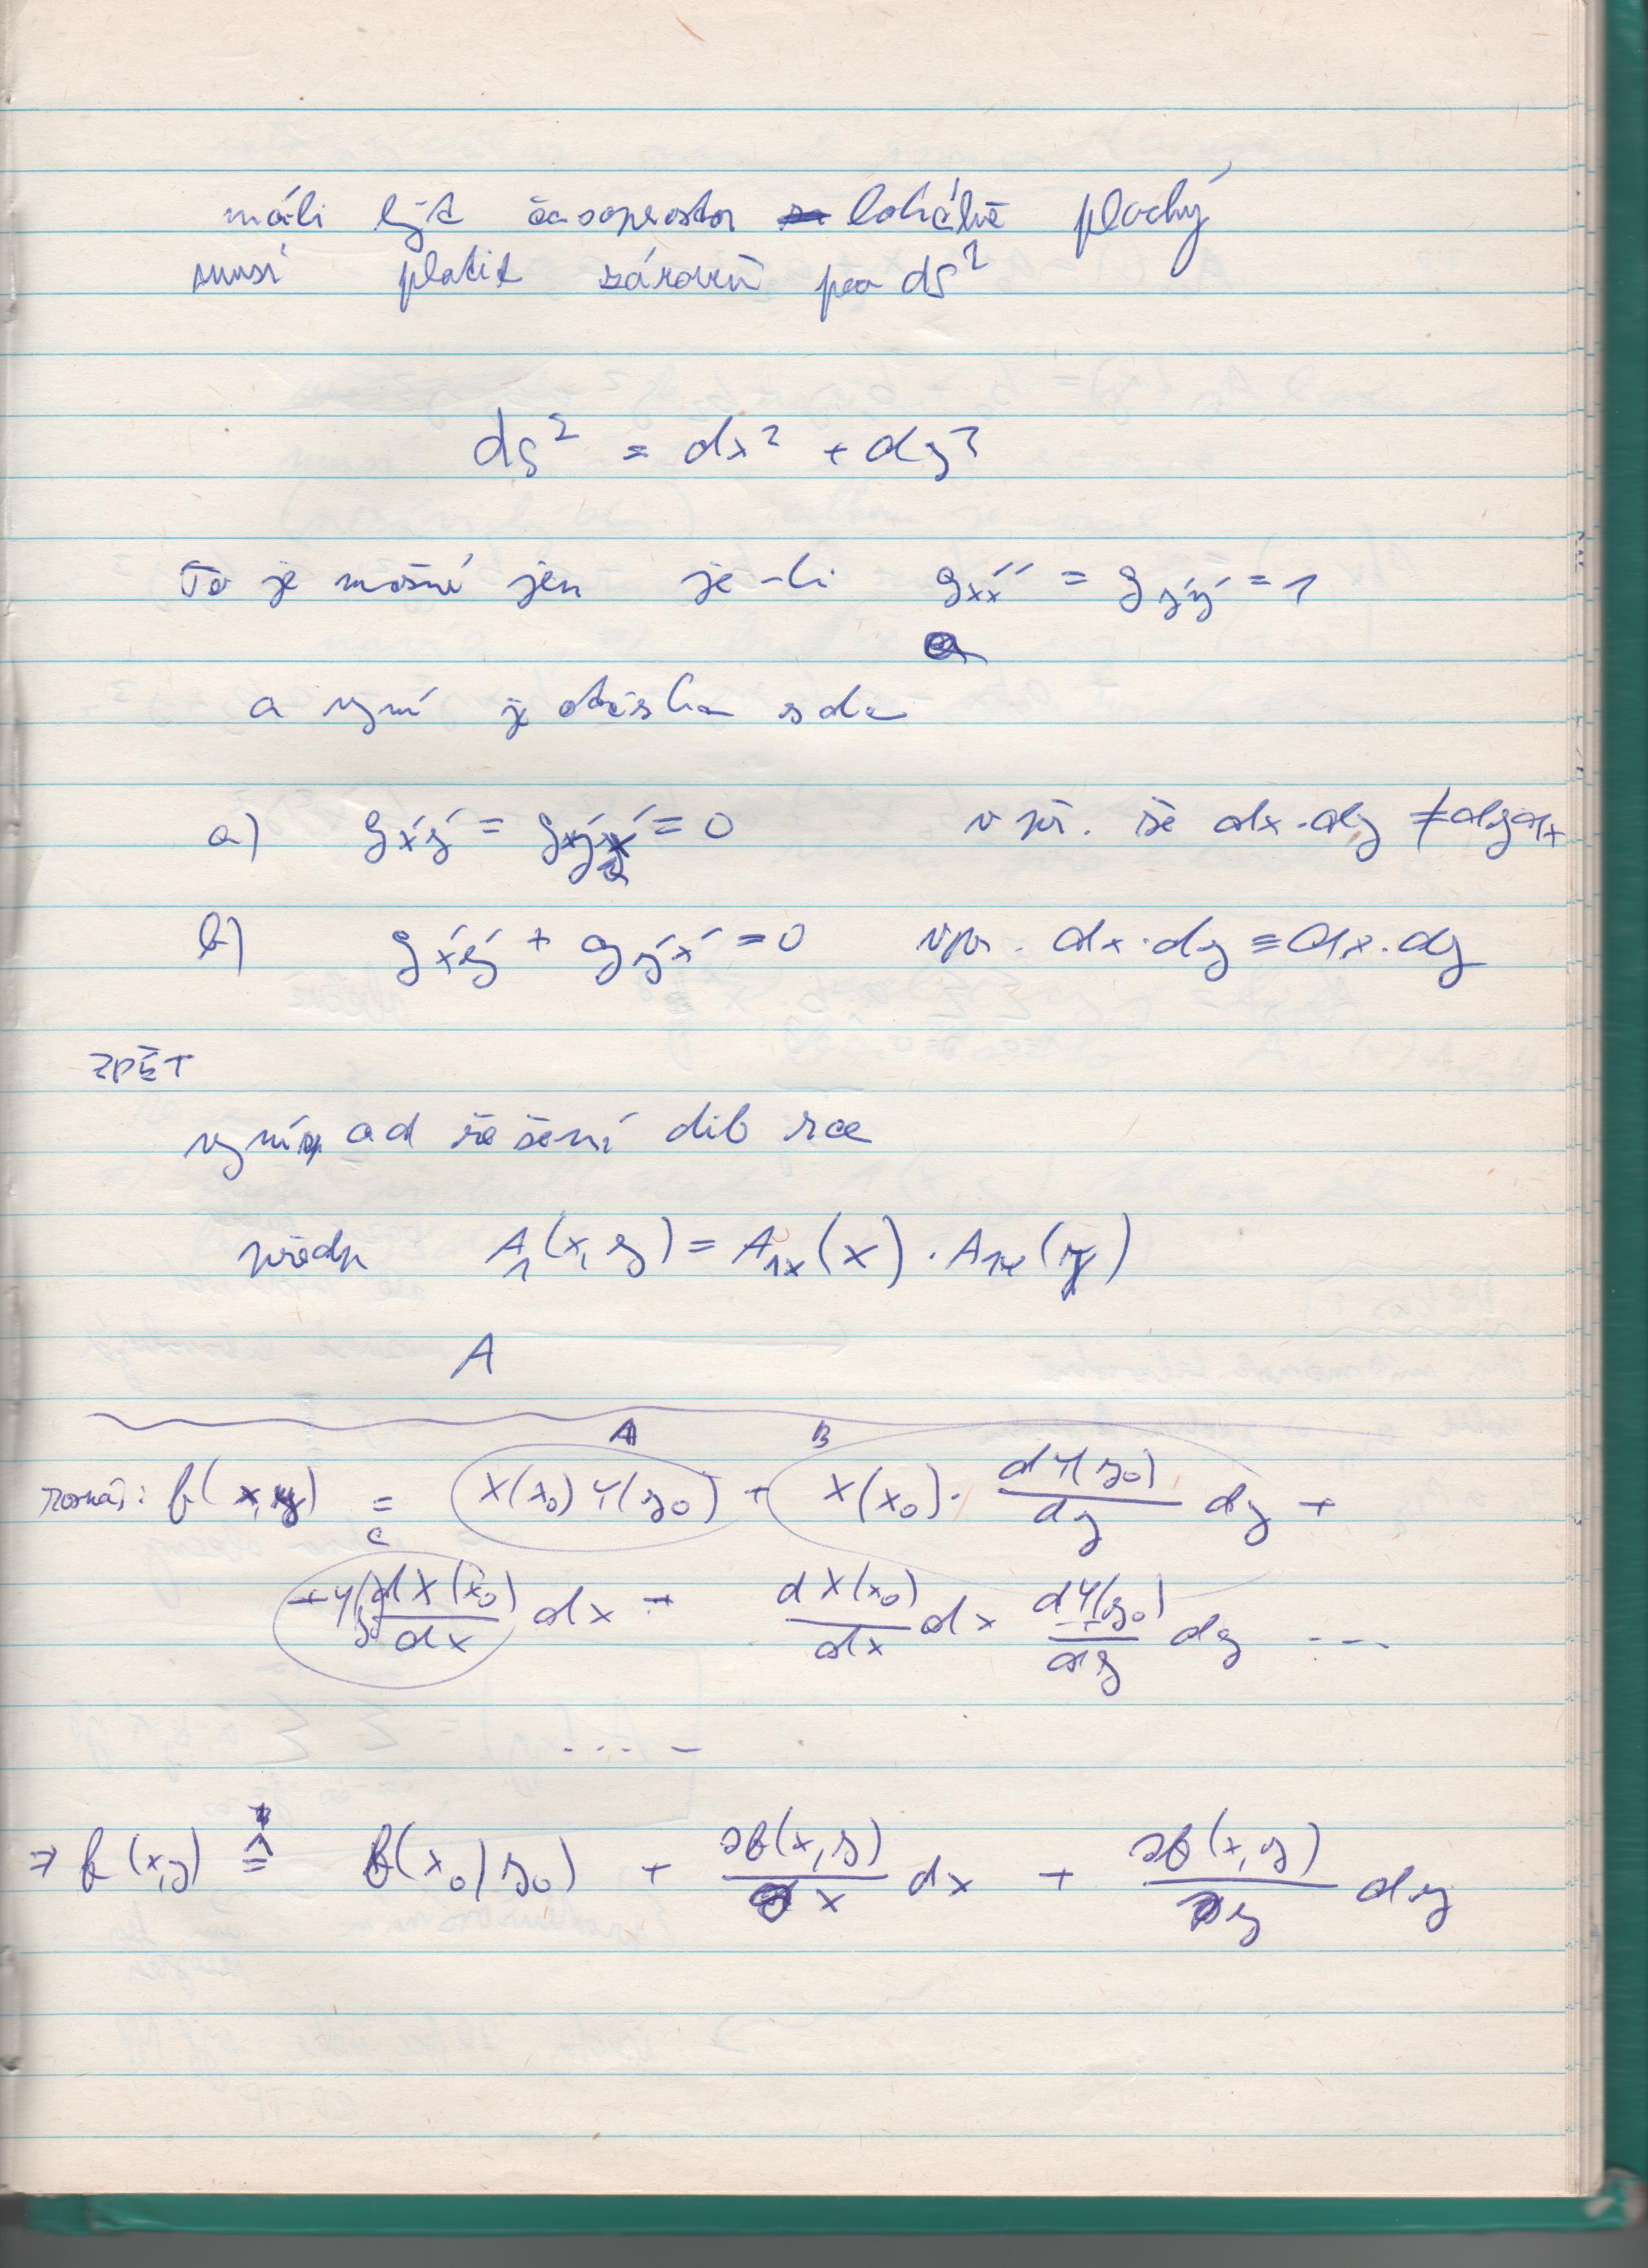 má-li být časoprostor lokálně plochý
musí platit zároveň pro ds²
ds² = dx² + dy²
To je možné jen je-li g_x´x´ = g_y´y´ = 1
a nyní je otázka zda
a) g_x´y´ = g_y´x´ = 0 v př. že dx·dy ≠ dy dx
b) g_x´y´ + g_y´x´ = 0 v př. dx·dy = dx·dy
ZPĚT
nyní ad řešení dif rce
předp A₁(x, y) = A₁ₓ(x) · A₁ₓ(y)
A
A B
pozná: f(x, y) = X(x₀) Y(y₀) + X(x₀) · dY(y₀)/dy dy +
C
+ Y(y₀) dX(x₀)/dx dx + dX(x₀)/dx dx dY(y₀)/dy dy ...
.... –
⇒ f(x,y) ≙ f(x₀, y₀) + ∂f(x,y)/∂x dx + ∂f(x,y)/∂y dy